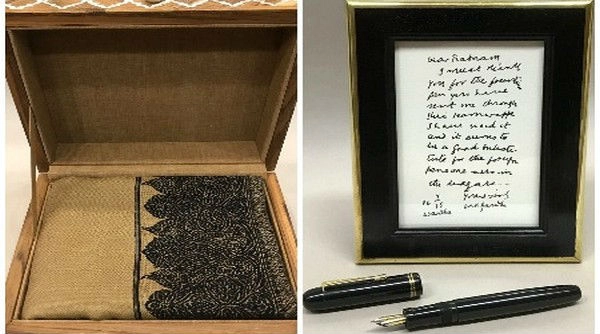 Dear Ratnam
I must thank
you for the
pen you have
sent me through
Kumarappa
I have used it
and it seems to
be a good substi
tute for the foreign
pens one sees in
the bazars
Yours
mkgandhi
Wardha